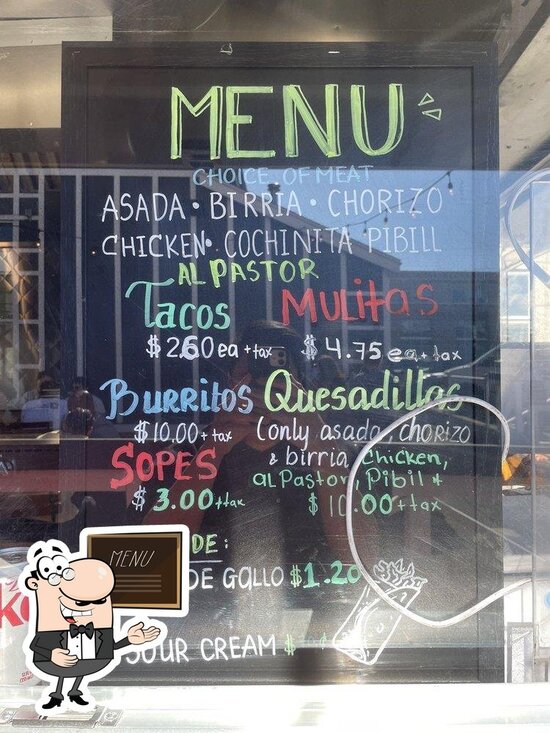 MENU
CHOICE OF MEAT
ASADA • BIRRIA • CHORIZO
CHICKEN • COCHINITA PIBILL
AL PASTOR
Tacos Mulitas
$2.60 ea + tax $4.75 ea + tax
Burritos Quesadillas
$10.00 + tax (only asada, chorizo
SOPES & birria, chicken,
al Pastor, Pibil
$3.00 + tax $10.00 + tax
DE:
DE GALLO $1.20
SOUR CREAM $
MENU